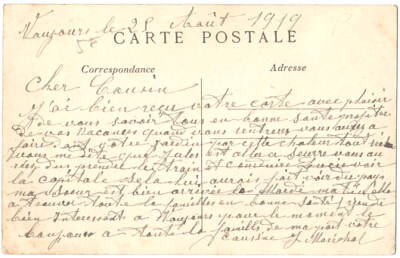 Vaujours le 25 Août 1919
CARTE POSTALE
Correspondance
Adresse
Cher Cousin
J'ai bien reçu votre carte avec plaisir
de vous savoir tous en bonne santé profiter
de vos vacances quand vous rentrerez vous aurez a
faire dans votre jardin par cette chaleur tout
vous me dite que Jules est allé a Seurre vous au
riez du prendre le train Lucie voir
la capitale sela lui aurais fait voir du pays
ma Sœur est bien arrivée le Mardi matin elle
a trouver toute la familles en bonne santé rien de
bien interessant a Vaujours pour le moment le
bonjours a toute la familles de ma part votre
cousine J Maréchal